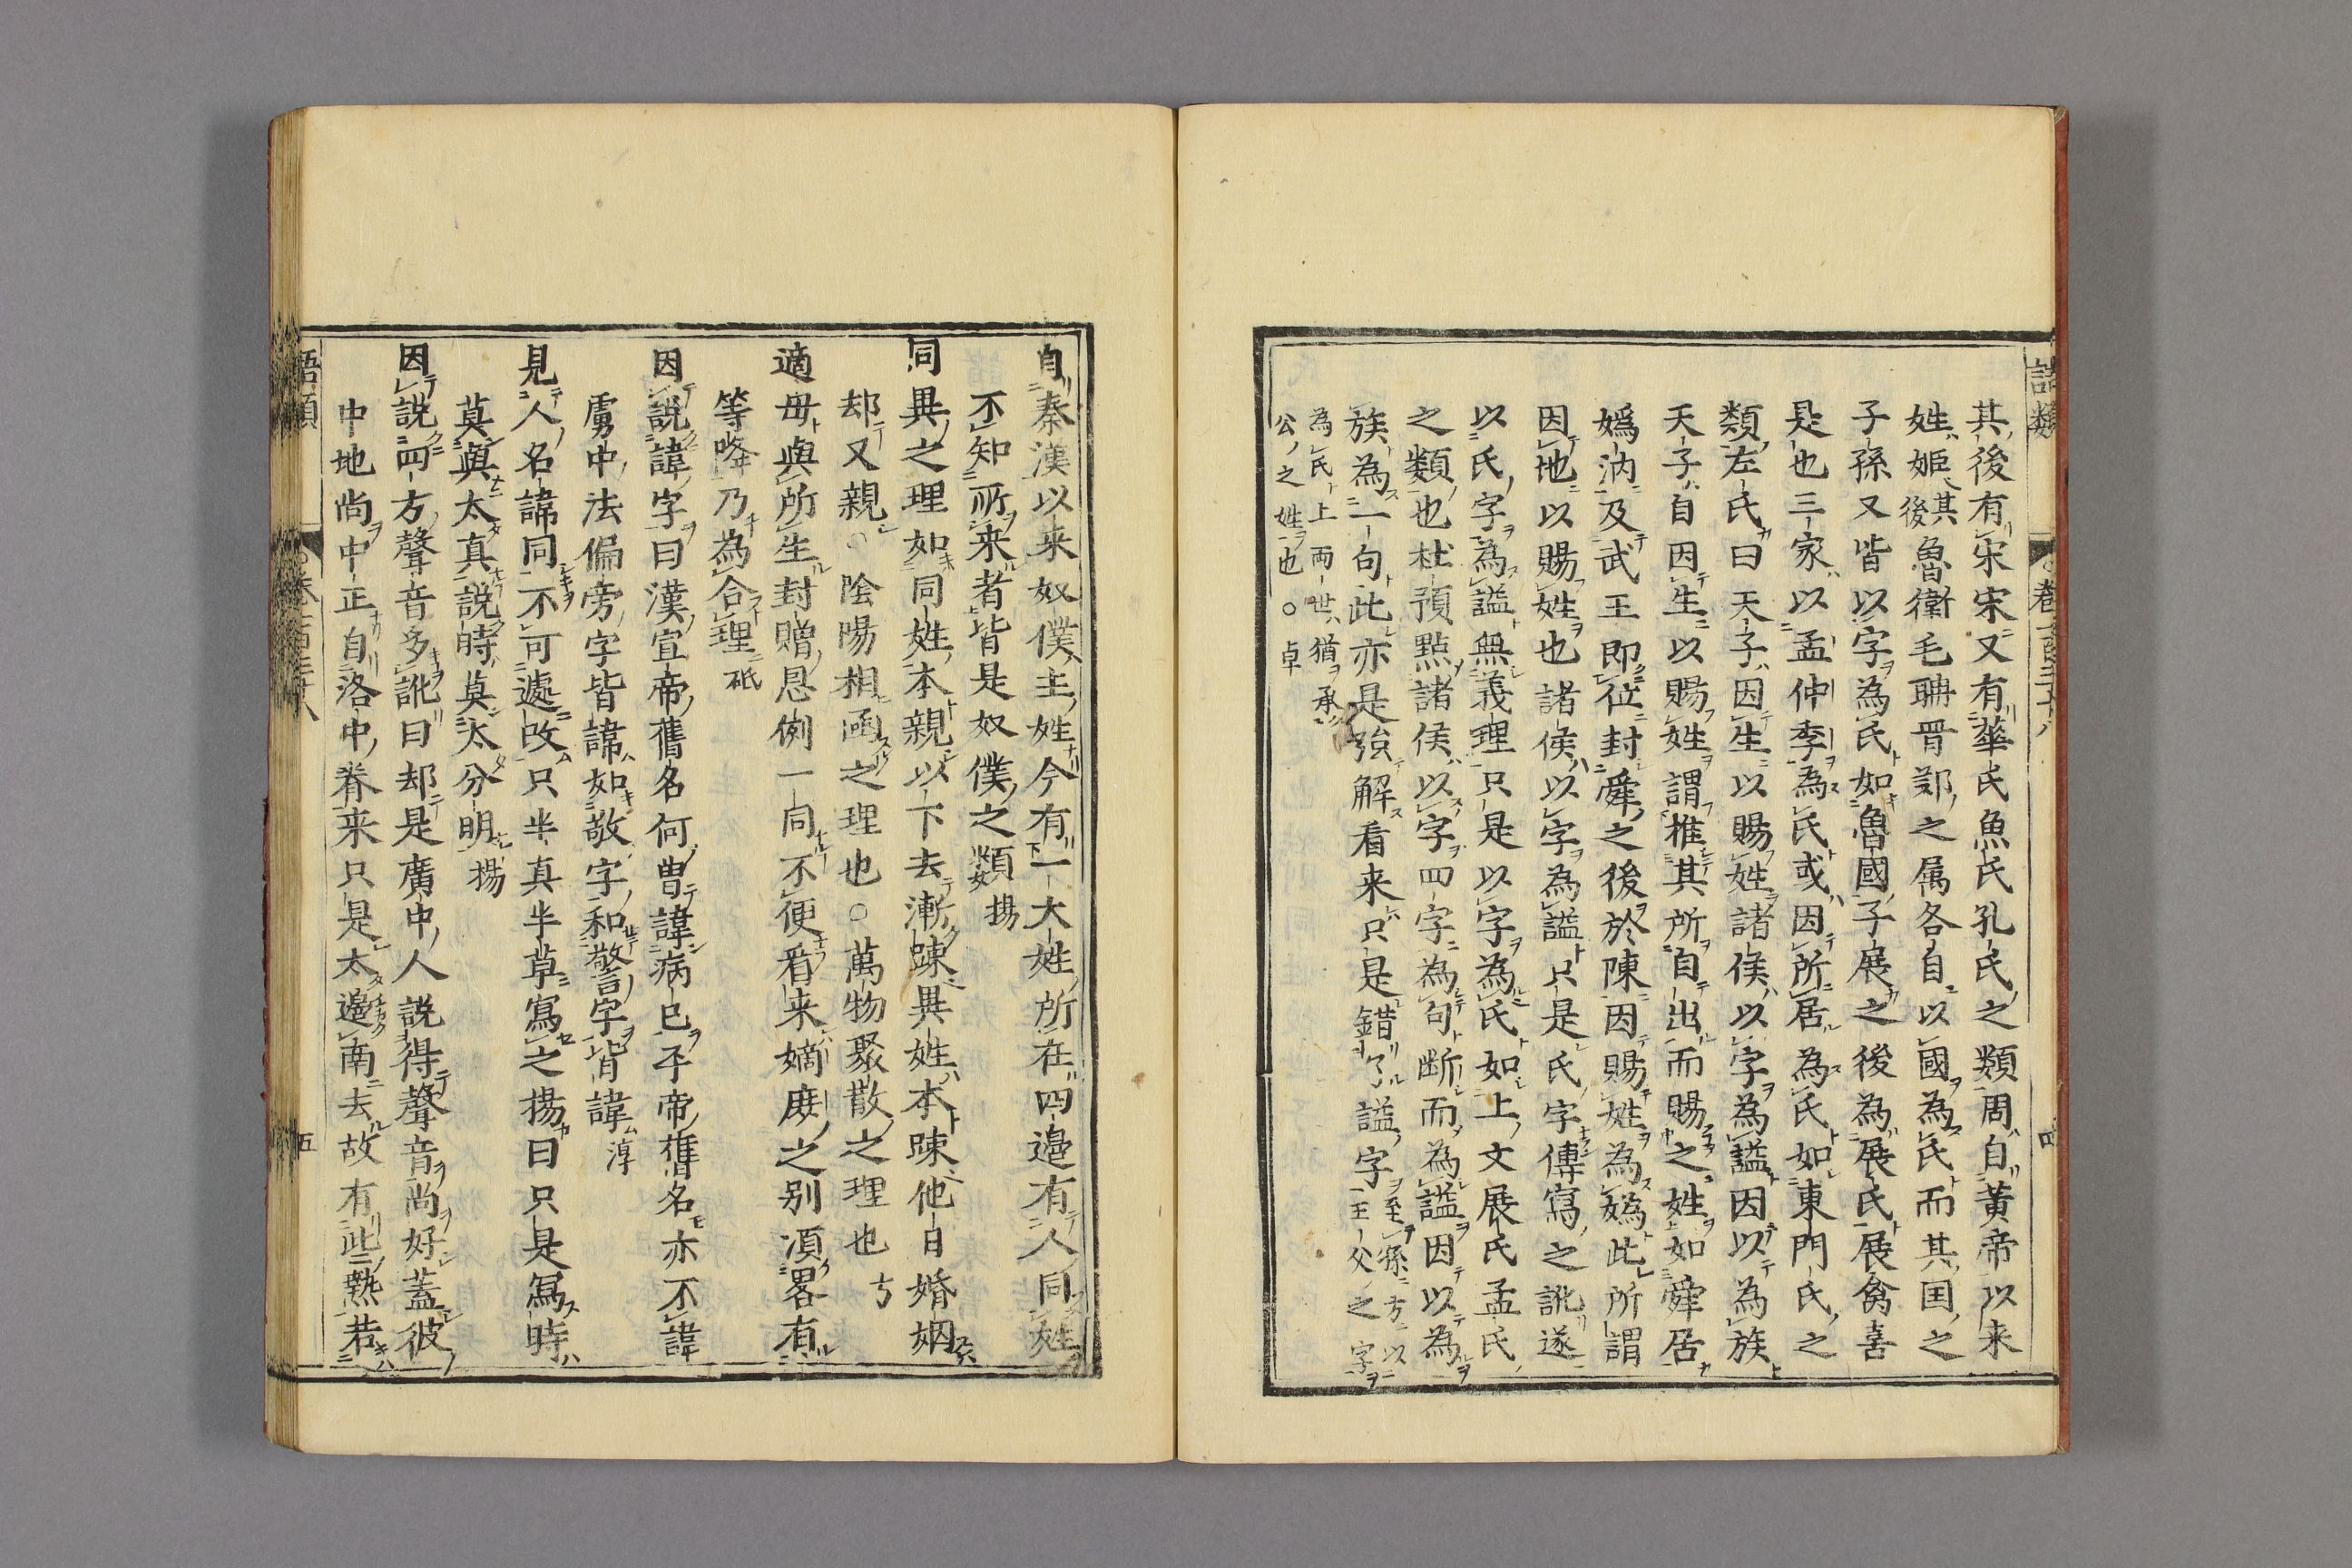 語類 卷一百三十八 四
其後有宋宋又有華氏魚氏孔氏之類周自黃帝以来
姓姬其後魯衛毛聃晉鄭之属各自以國為氏而其国之
子孫又皆以字為氏如魯國子展之後為展氏展禽喜
是也三家以孟仲季為氏或因所居為氏如東門氏之
類左氏曰天子因生以賜姓諸侯以字為謚因以為族
天子自因生以賜姓謂推其所自出而賜之姓如舜居
媯汭及武王即位封舜之後於陳因賜姓為媯此所謂
因地以賜姓也諸侯以字為謚只是氏字傳寫之訛遂
以氏字為謚無義理只是以字為氏如上文展氏孟氏
之類也杜預點諸侯以字四字為句断而為謚因以為
族為一句此亦是強解看来只是錯了謚字至孫方以王父之字
為氏上両世猶承公之姓也○卓
自秦漢以来奴僕主姓今有一大姓所在四邉有人同姓
不知所来者皆是奴僕之類揚
同異之理如同姓本親以下去漸踈異姓本踈他日婚姻
却又親○陰陽相函之理也○萬物聚散之理也方
適母與所生封贈恩例一同不便看来嫡庶之别湏畧有
等降乃為合理砥
因説諱字曰漢宣帝舊名何曽諱病已平帝舊名亦不諱
虜中法偏旁字皆諱如敬字和警字皆諱淳
見人名諱同不可遽改只半真半草寫之揚曰只是寫時
莫與太真説時莫太分明揚
因説四方聲音多訛曰却是廣中人説得聲音尚好蓋彼
中地尚中正自洛中脊来只是太邉南去故有些熱若
語類 卷一百三十八 五